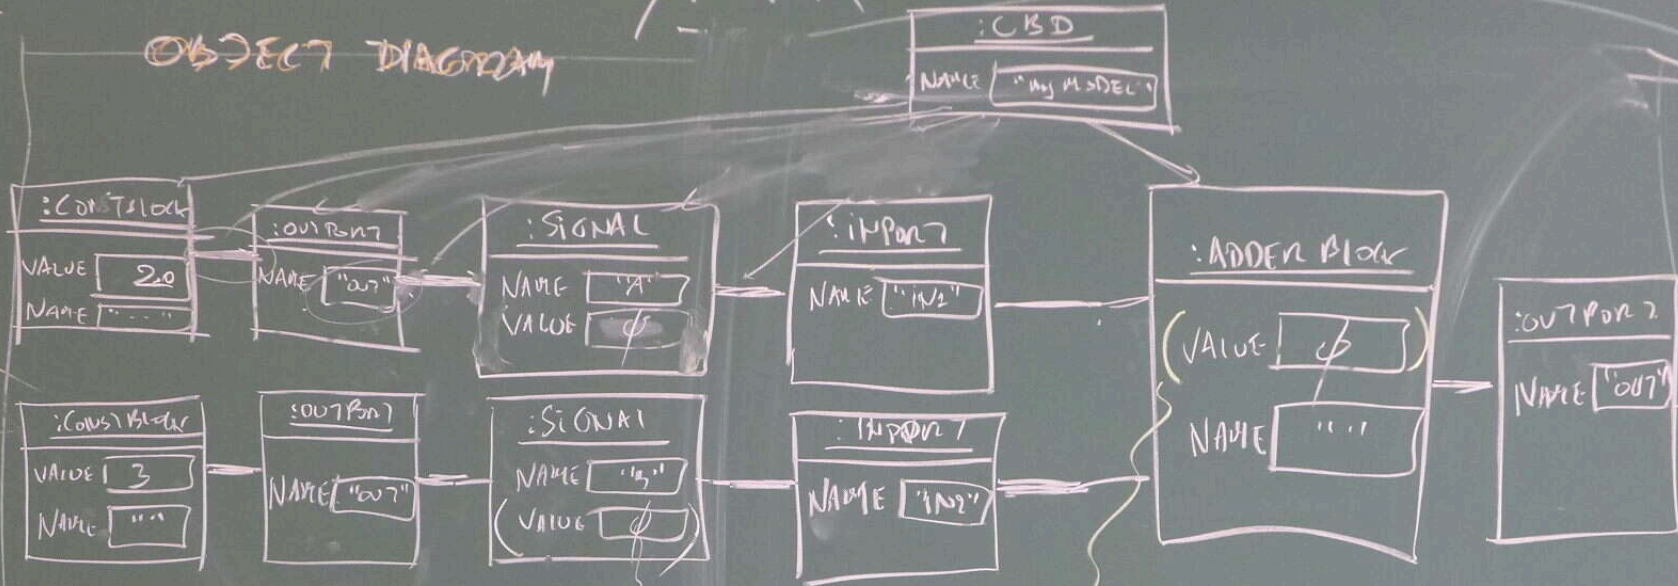 OBJECT DIAGRAM
:CBD
NAME "my MODEL"
:CONSTBLOCK
VALUE 2.0
NAME "..."
:OUTPORT
NAME "OUT"
:SIGNAL
NAME "A"
VALUE φ
:INPORT
NAME "IN1"
:ADDER BLOCK
(VALUE φ)
NAME " "
:OUTPORT
NAME "OUT"
:CONSTBLOCK
VALUE 3
NAME " "
:OUTPORT
NAME "OUT"
:SIGNAL
NAME "B"
(VALUE φ)
:INPORT
NAME "IN2"